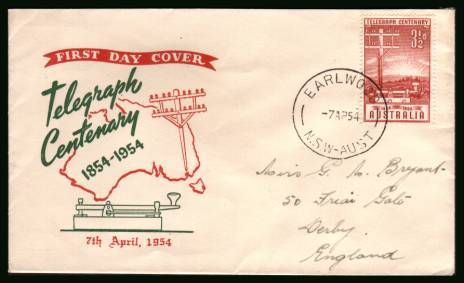 FIRST DAY COVER
Telegraph
Centenary
1854-1954
7th April, 1954
TELEGRAPH CENTENARY
3½D
AUSTRALIA
EARLWO
-7AP54
N.S.W-AUST
Miss G. N. Bryant
50 Friar Gate
Derby
England